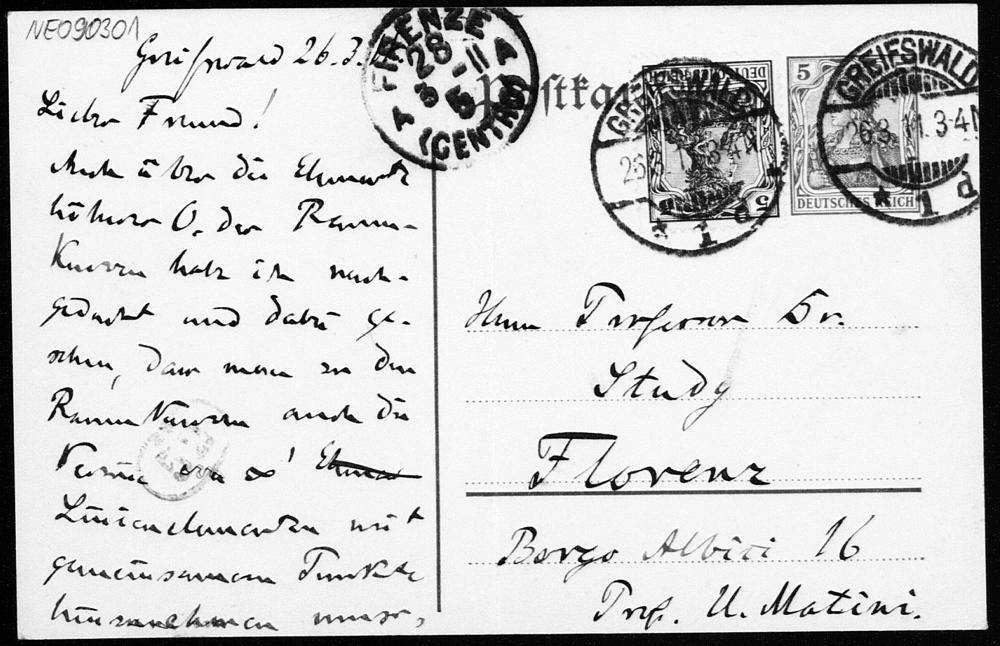 NE090301
Greifswald 26.3.
Lieber Freund!
Auch über die Elemente
höherer O. der Raum-
Kurven habe ich nach-
gedacht und dabei ge-
sehen, dass man zu den
Raum Kurven auch die
Vereine von ∞¹
Linienelementen mit
gemeinsamem Punkte
hinzunehmen muss,
FIRENZE
28
3 - 11
5
A A
(CENTRO)
Postkarte
GREIFSWALD
26.3.11.3-4N
* 1 d
DEUTSCHES REICH
5
GREIFSWALD
26.3.11.3-4N
* 1 d
5
DEUTSCHES REICH
Herrn Professor Dr.
Study
Florenz
Borgo Albizi 16
Prof. U. Matini.